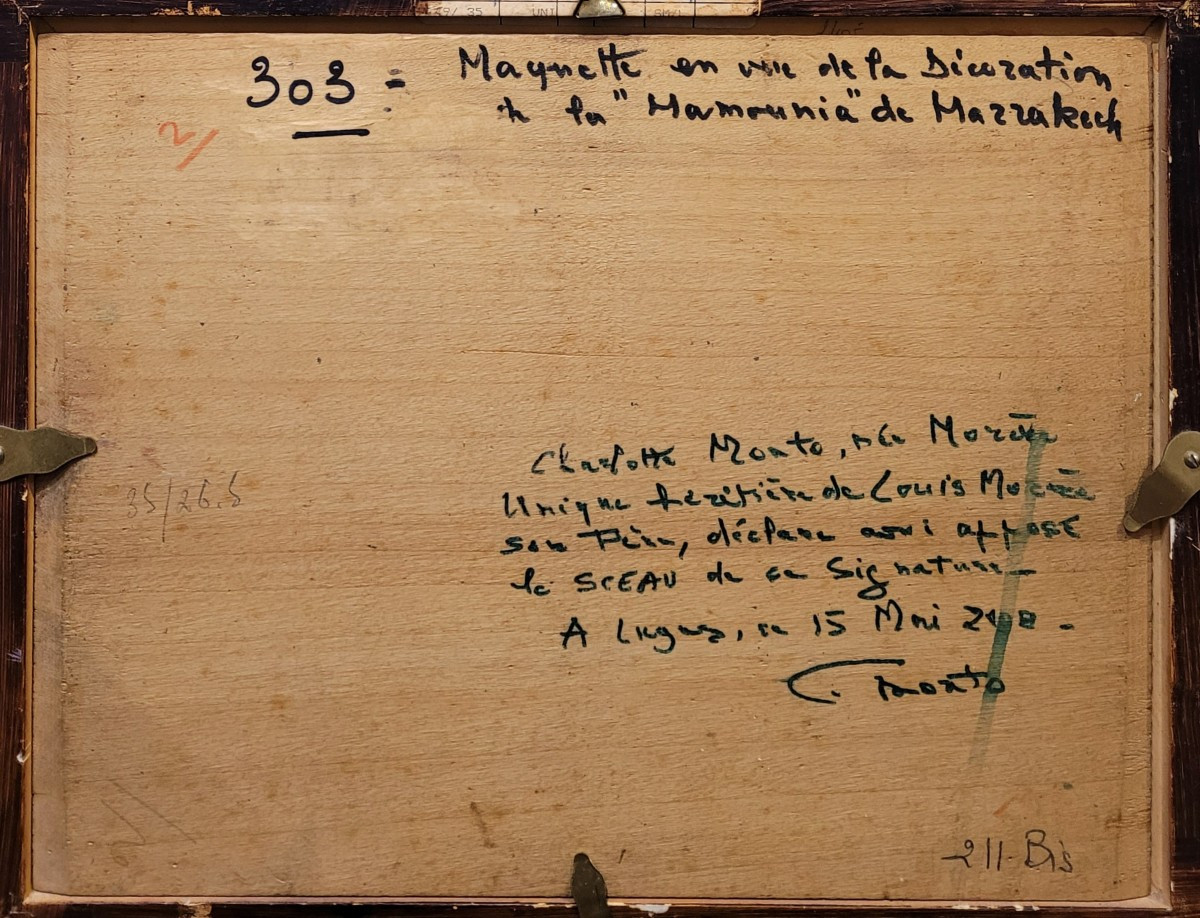 29/ 35 UNI
303 = Maquette en vue de la Décoration
de la "Mamounia" de Marrakech
2/
Charlotte Monto, née Morère
Unique héritière de Louis Morère
son Père, déclare avoir apposé
35/26.5
le SCEAU de sa Signature_
A Lugas, ce 15 Mai
C. Monto
211-Bis